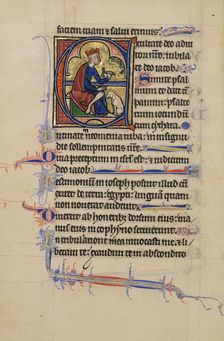 faciem tuam & salui erimus.
Exultate deo adiu
tori nr̄o: iubi
late deo iacob.
Sumite psal
mum & date tẏ
panum: psalte
rium iocundum
cum cẏthara.
in neomenia tuba: in insigni
die sollempnitatis nr̄e.
Quia preceptum in isrl̄ est: & iudicium
deo iacob.
Testimonium in ioseph posuit illud cū
exiret de terra egẏpti: linguam quam
non nouerat audiuit.
Diuertit ab oneribȝ dorsum eius: ma
nus eius in cophino seruierunt.
In tribulatione
me & libe
raui te: exaudiui te in abscondito